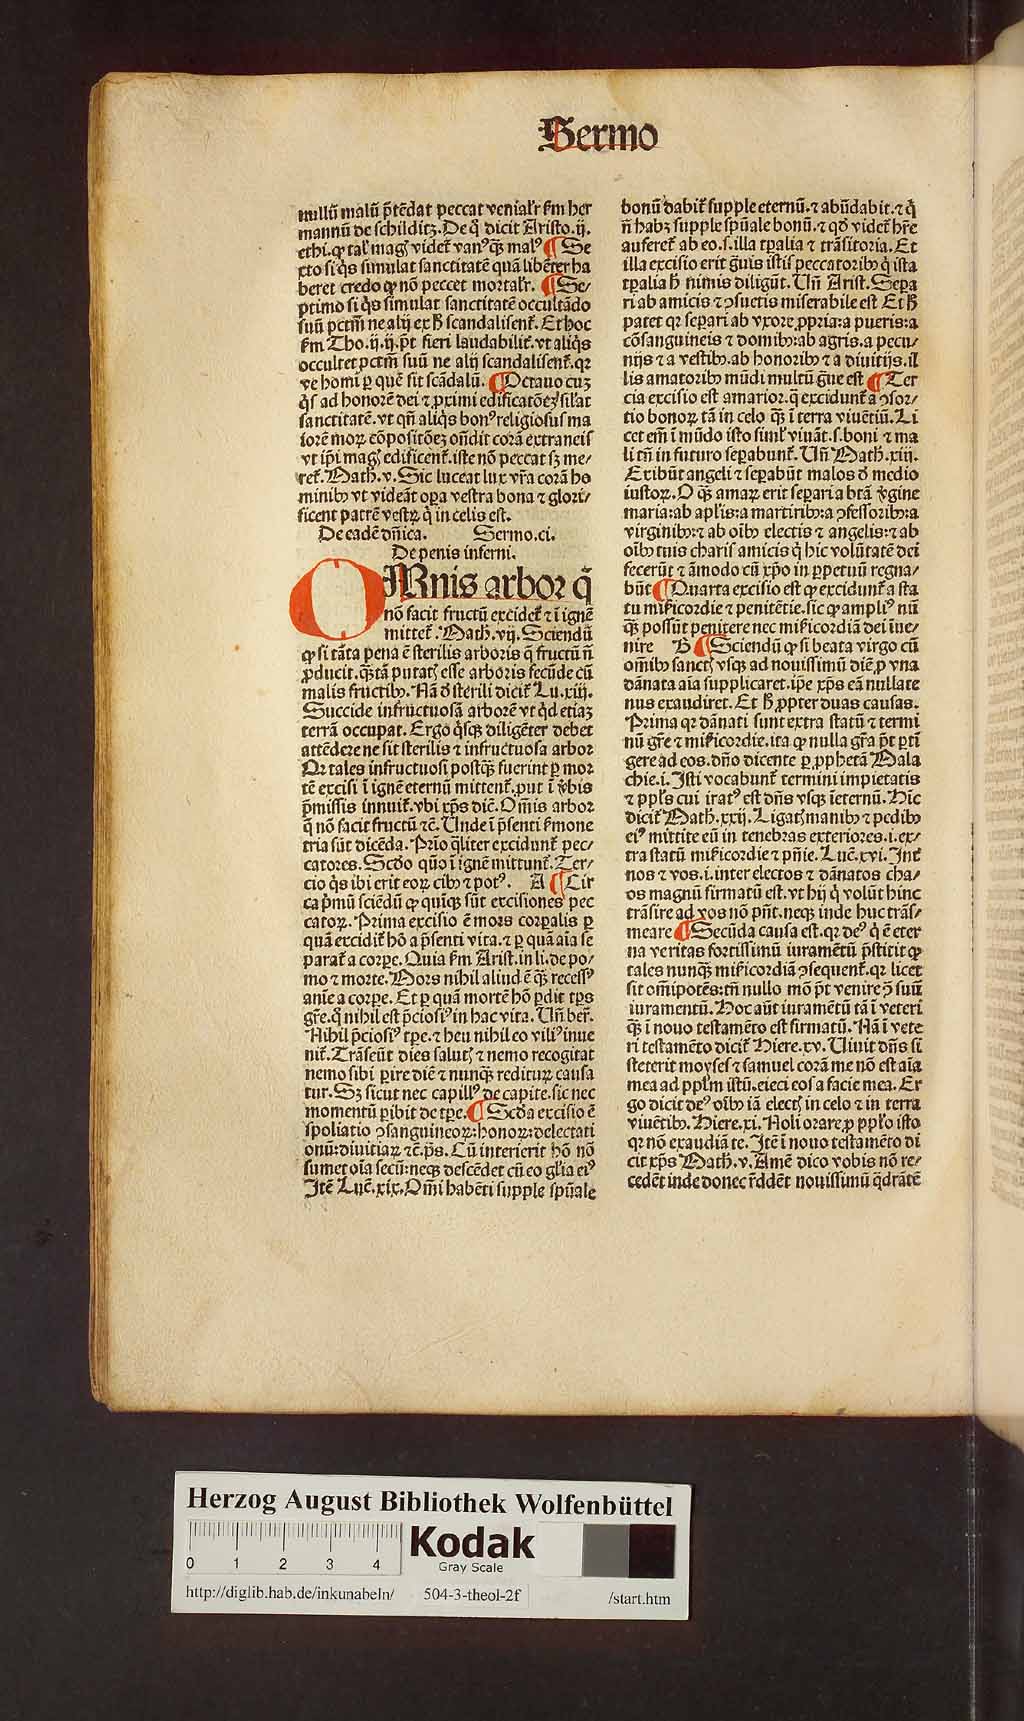 Sermo
nullū malū p̄tēdat peccat venialr̄ ẜm her
mannū de schilditz. De q̄ dicit Aristo. ij.
ethi. ꝙ tal' magꝭ videt᷑ vanꝰ q̄ꝫ malꝰ ¶ Se
xto si q̄s simulat sanctitatē quā libēter ha
beret credo ꝙ nō peccet mortalr̄. ¶ Se/
ptimo si q̄s simulat sanctitatē occultādo
suū pctm̄ ne alij ex h̄ scandalisent᷑. Et hoc
ẜm Tho. ij. ij. p̄t fieri laudabilit᷑. vt aliq̄s
occultet pctm̄ suū ne alij scandalisent᷑. qꝛ
ve homi ꝑ quē fit scādalū. ¶ Octauo cuꝫ
q̄s ad honorē dei ⁊ ꝓximi edificatōeꝫ sil'at
sanctitatē. vt qn̄ aliq̄s bonꝰ religiosus ma
iorē moꝝ cōpositōeꝫ on̄dit corā extraneis
vt ip̄i magꝭ edificent᷑. iste nō peccat sꝫ me/
ret᷑. Math. v. Sic luceat lux vr̄a corā ho
minibꝰ vt videāt oꝑa vestra bona ⁊ glori/
ficent patrē vestꝝ q̄ in celis est.
De eadē dn̄ica. Sermo. ci.
De penis inferni.
OMnis arbor q̄
nō facit fructū excidet᷑ ⁊ ī ignē
mittet᷑. Math. vij. Sciendū
ꝙ si tāta pena ē sterilis arboris q̄ fructū n̄
ꝓducit. q̄ꝫtā putatꝭ esse arboris fecūde cū
malis fructibꝰ. Nā d̄ sterili dicit᷑ Lu. xiij.
Succide infructuosā arborē vt q̄d etiaꝫ
terrā occupat. Ergo q̄sqꝫ diligēter debet
attēdere ne sit sterilis ⁊ infructuosa arbor
Qꝛ tales infructuosi postq̄ꝫ fuerint ꝑ mor
tē excisi ī ignē eternū mittent᷑. ꝓut ī v̄bis
p̄missis innuit᷑. vbi xp̄s diē. Om̄is arbor
q̄ nō facit fructū ⁊c̄. Unde ī p̄senti ẜmone
tria sūt dicēda. Prīo q̄liter excidunt᷑ pec/
catores. Scd̄o quō ī ignē mittunt᷑. Ter/
cio q̄s ibi erit eoꝝ cibꝰ ⁊ potꝰ. A ¶ Cir
ca p̄mū sciēdū ꝙ quīqꝫ sūt excisiones pec
catoꝝ. Prima excisio ē mors corꝑalis ꝑ
quā excidit᷑ hō a p̄senti vita. ⁊ ꝑ quā aīa se
parat᷑ a corꝑe. Quia ẜm Arist. in li. de po/
mo ⁊ morte. Mors nihil aliud ē q̄ꝫ recessꝰ
anīe a corꝑe. Et ꝑ quā mortē hō ꝑdit tp̄s
gr̄e. q̄ nihil est p̄ciosiꝰ in hac vita. Un̄ ber̄.
Nihil p̄ciosiꝰ tp̄e. ⁊ heu nihil eo viliꝰ inue
nit᷑. Trāseūt dies salutꝭ ⁊ nemo recogitat
nemo sibi ꝑire diē ⁊ nunq̄ꝫredituꝝ causa
tur. Sꝫ sicut nec capillꝰ de capite. sic nec
momentū ꝑibit de tp̄e. ¶ Scd̄a excisio ē
spoliatio ↄsanguineoꝝ: honoꝝ: delectati
onū: diuitiaꝝ ⁊c̄. ps̄. Cū interierit hō nō
sumet oīa secū: neqꝫ descēdet cū eo gl'ia eiꝰ
Itē Luē. xix. Om̄i habēti supple spūale
bonū dabit᷑ supple eternū. ⁊ abūdabit. ⁊ q̄
n̄ habꝫ supple spūale bonū. ⁊ qd̄ videt᷑ hr̄e
auferet᷑ ab eo. s. illa tꝑalia ⁊ trāsitoria. Et
illa excisio erit ḡuis istis peccatoribꝰ q̄ ista
tꝑalia h̄ nimis diligūt. Un̄ Arist. Sepa
ri ab amicis ⁊ ↄsuetis miserabile est Et h̄
patet qꝛ seꝑari ab vxore ꝓpria: a pueris: a
cōsanguineis ⁊ domibꝰ: ab agris. a pecu/
nijs ⁊ a vestibꝰ. ab honoribꝰ ⁊ a diuitijs. il
lis amatoribꝰ mūdi multū ḡue est ¶ Ter
cia excisio est amarior. q̄ excidunt᷑ a ↄsor/
tio bonoꝝ tā in celo q̄ꝫ ī terra viuētiū. Li
cet em̄ ī mūdo isto simul' viuāt. s. boni ⁊ ma
li tn̄ in futuro seꝑabunt᷑. Un̄ Math. xiij.
Exibūt angeli ⁊ seꝑabūt malos d̄ medio
iustoꝝ. O q̄ꝫ amaꝝ erit seꝑari a btā v̄gine
maria: ab apl'is: a martiribꝰ: a ↄfessoribꝰ: a
virginibꝰ: ⁊ ab oībꝰ electis ⁊ angelis: ⁊ ab
oībꝰ tuis charis amicis q̄ hic volūtatē dei
fecerūt ⁊ āmodo cū xp̄o in ꝑpetuū regna/
būt ¶ Quarta excisio est ꝙ excidunt᷑ a sta
tu mīsicordie ⁊ penitētie. sic ꝙ ampliꝰ nū
q̄ꝫ possūt penitere nec misicordiā dei īue/
nire B ¶ Sciendū ꝙ si beata virgo cū
om̄ibꝰ sanctꝭ vsqꝫ ad nouissimū diē ꝓ vna
dānata aīa supplicaret. ip̄e xp̄s eā nullate
nus exaudiret. Et h̄ ꝓpter duas causas.
Prima qꝛ dānati sunt extra statū ⁊ termi
nū gr̄e ⁊ misicordie. ita ꝙ nulla gr̄a p̄t ꝑtī
gere ad eos. dn̄o dicente ꝑ ꝓphetā Mala
chie. i. Isti vocabunt᷑ termini impietatis
⁊ ppl̄s cui iratꝰ est dn̄s vsqꝫ īeternū. Hic
dicit᷑ Math. xxij. Ligatꝭ manibꝰ ⁊ pedibꝰ
eiꝰ mittite eū in tenebras exteriores. i. ex/
tra statū misicordie ⁊ pn̄ie. Luē. xvi. Int᷑
nos ⁊ vos. i. inter electos ⁊ dānatos cha/
os magnū firmatū est. vt hij q̄ volūt hinc
trāsire ad vos nō pn̄t. neqꝫ inde huc trās/
meare ¶ Secūda causa est. qꝛ deꝰ q̄ ē eter
na veritas fortissimū iuramētū p̄stitit ꝙ
tales nunq̄ꝫ misicordiā ↄsequent᷑. qꝛ licet
sit om̄ipotēs: tn̄ nullo mō p̄t venire ↄ̄ suū
iuramentū. Hoc aūt iuramētū tā ī veteri
q̄ꝫ ī nouo testamēto est firmatū. Nā ī vete
ri testamēto dicit᷑ Hiere. xv. Uiuit dn̄s si
steterit moyses ⁊ samuel corā me nō est aīa
mea ad ppl'm istū. eieci eos a facie mea. Er
go dicit deꝰ oībꝰ iā electꝭ in celo ⁊ in terra
viuētibꝰ. Hiere. xi. Noli orare ꝓ ppl'o isto
qꝛ nō exaudiā te. Itē ī nouo testamēto di
cit xp̄s Math. v. Amē dico vobis nō re/
cedēt inde donec r̄ddēt nouissimū q̄drātē
Herzog August Bibliothek Wolfenbüttel
0 1 2 3 4
Kodak
Gray Scale
http://diglib.hab.de/inkunabeln/ 504-3-theol-2f /start.htm